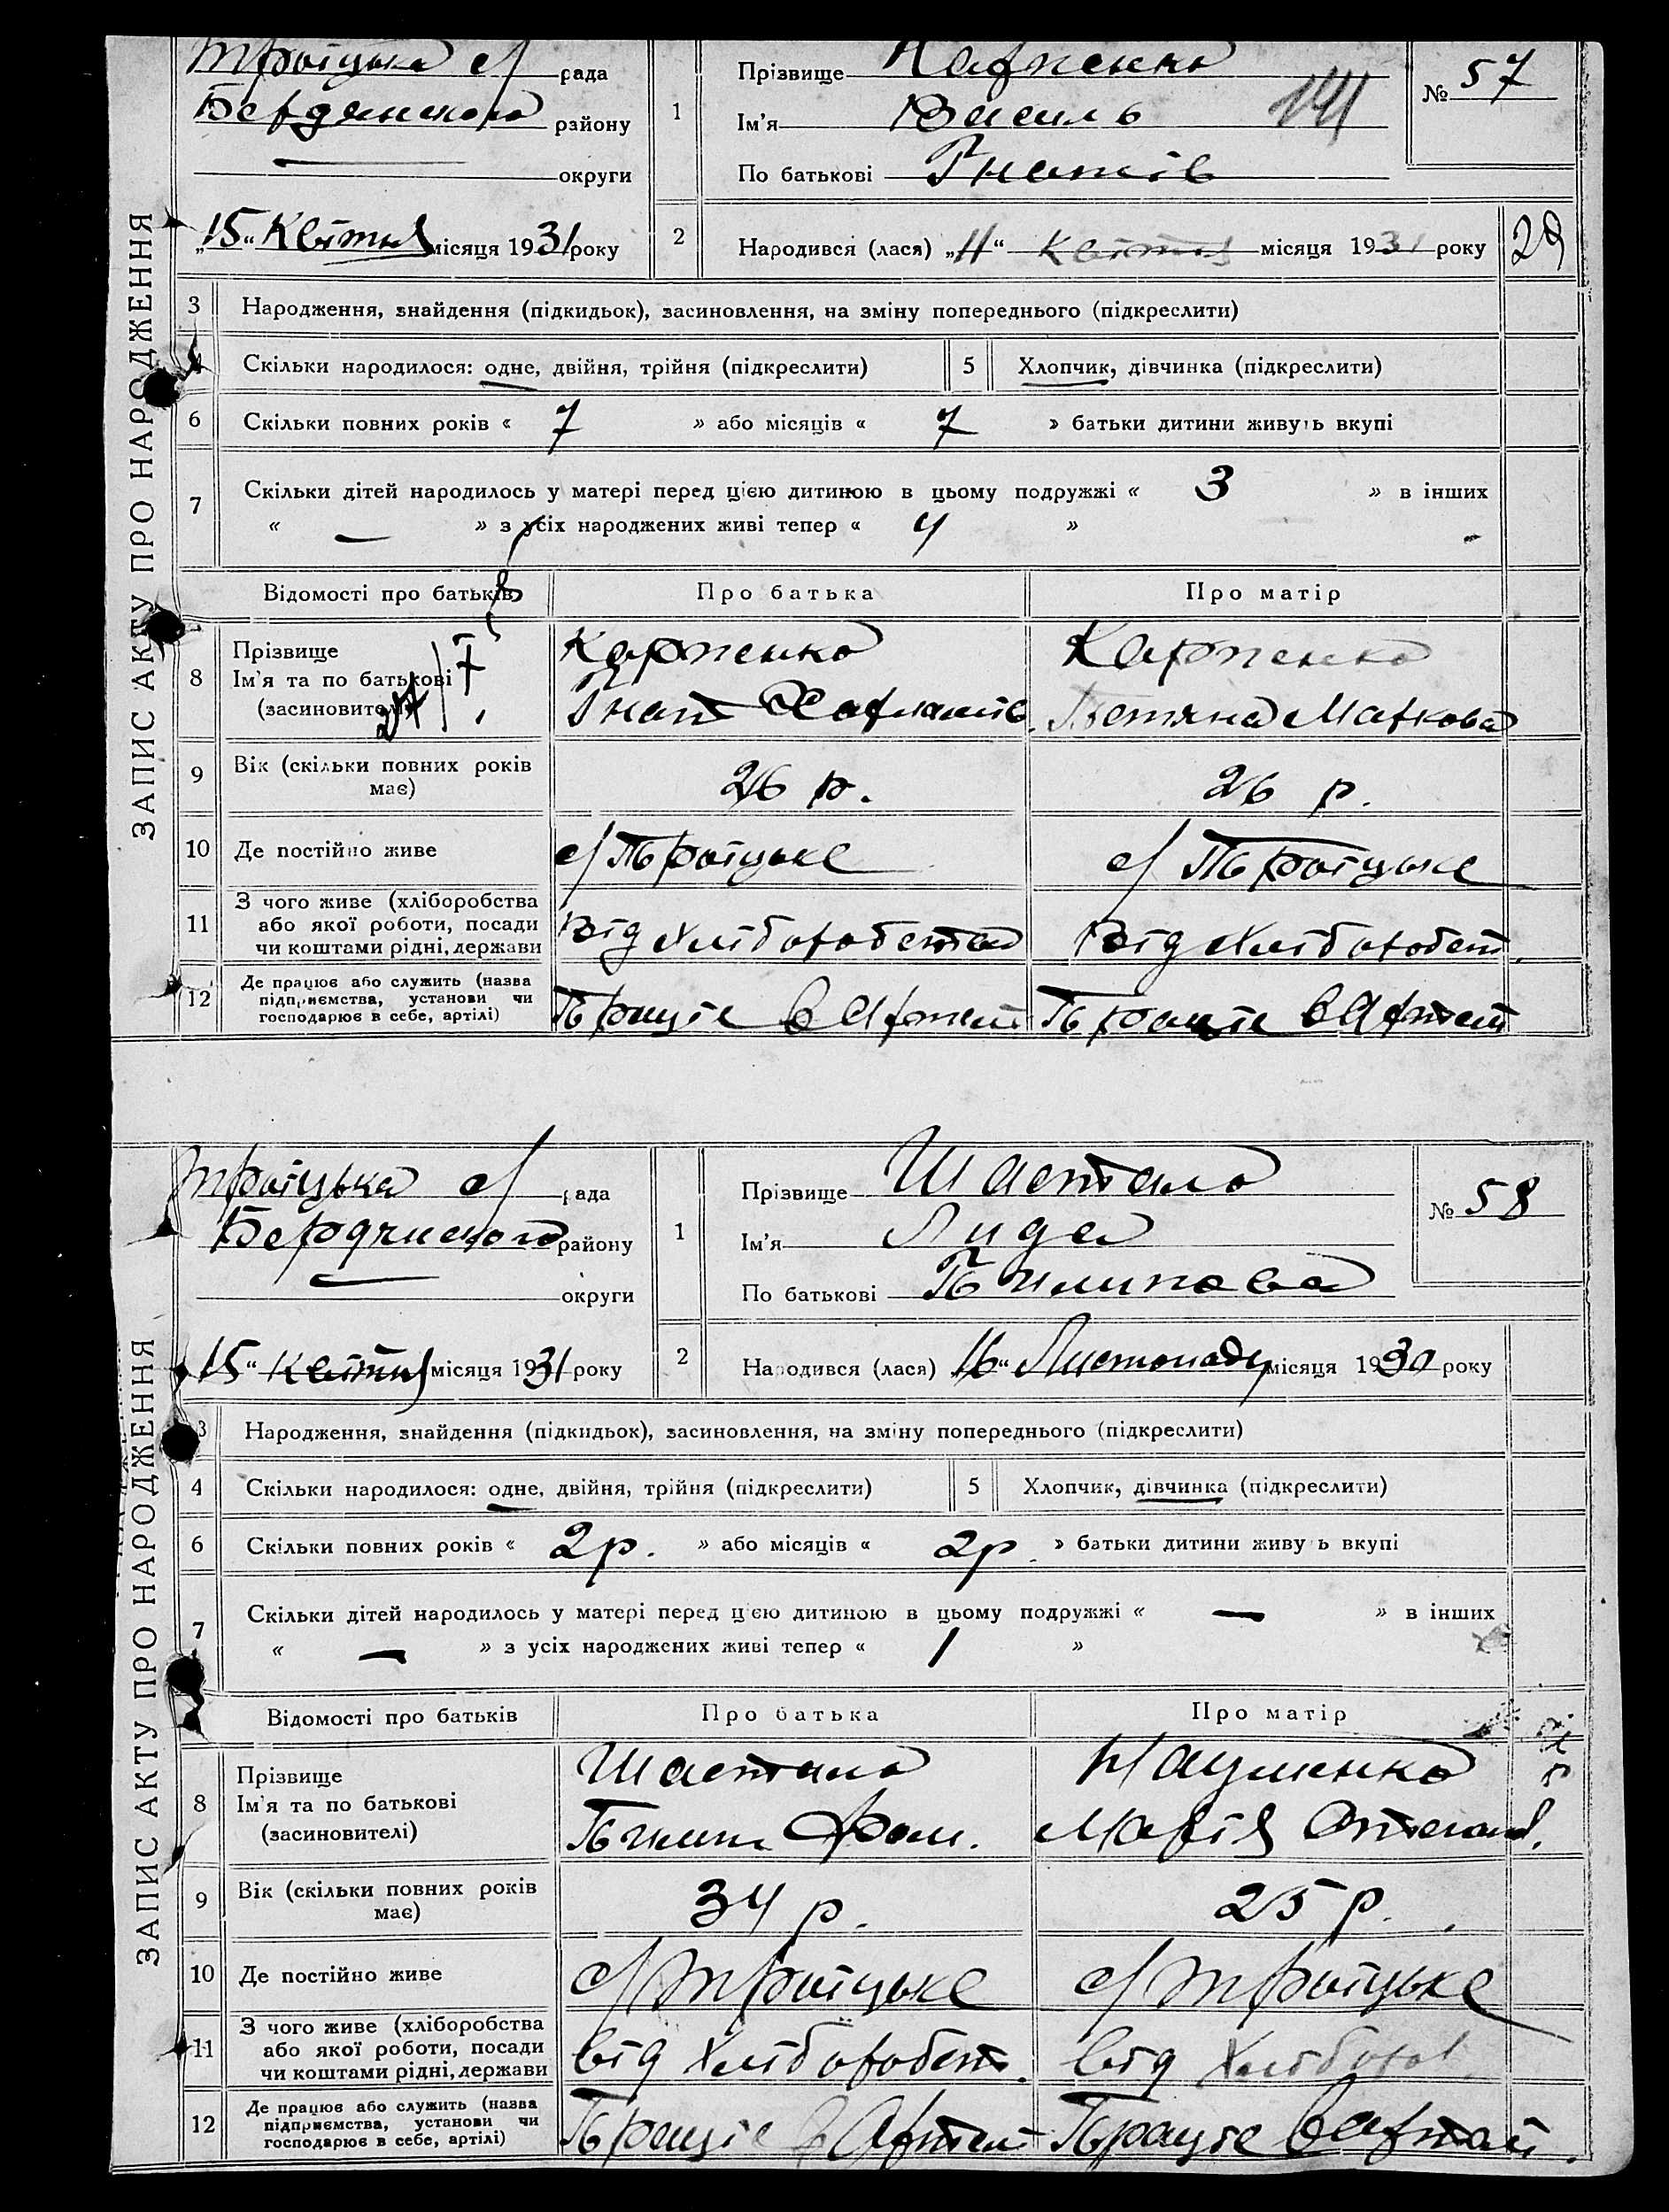 ЗАПИС АКТУ ПРО НАРОДЖЕННЯ
Троїцька с/ рада
Бердянського району
округи
„15“ Квітня місяця 1931 року
1
Прізвище Карпенко
Ім'я Василь
141
По батькові Гнатів
№ 57
2 Народився (лася) „11“ Квітня місяця 1931 року
29
3 Народження, знайдення (підкидьок), засиновлення, на зміну попереднього (підкреслити)
4 Скільки народилося: одне, двійня, трійня (підкреслити) 5 Хлопчик, дівчинка (підкреслити)
6 Скільки повних років « 7 » або місяців « 7 » батьки дитини живуть вкупі
7 Скільки дітей народилось у матері перед цією дитиною в цьому подружжі « 3 » в інших
« — » з усіх народжених живі тепер « 4 »
Відомості про батьків Про батька Про матір
8 Прізвище Карпенко Карпенко
Ім'я та по батькові Гнат Харлампів. Тетяна Маркова
(засновителі)
9 Вік (скільки повних років має) 26 р. 26 р.
10 Де постійно живе с/Троїцьке с/Троїцьке
11 З чого живе (хліборобства
або якої роботи, посади
чи коштами рідні, держави Від хліборобства Від хліборобст.
12 Де працює або служить (назва
підприємства, установи чи
господарює в себе, артілі) Працює в Артелі Працює в Артелі
ЗАПИС АКТУ ПРО НАРОДЖЕННЯ
Троїцька с/ рада
Бердянського району
округи
15“ Квітня місяця 1931 року
1
Прізвище Шастало
Ім'я Лида
По батькові Пилипова
№ 58
2 Народився (лася) 16“ Листопаду місяця 1930 року
3 Народження, знайдення (підкидьок), засиновлення, на зміну попереднього (підкреслити)
4 Скільки народилося: одне, двійня, трійня (підкреслити) 5 Хлопчик, дівчинка (підкреслити)
6 Скільки повних років « 2р. » або місяців « 2р. » батьки дитини живуть вкупі
7 Скільки дітей народилось у матері перед цією дитиною в цьому подружжі « — » в інших
« — » з усіх народжених живі тепер « 1 »
Відомості про батьків Про батька Про матір
8 Прізвище Шастало Науменко
Ім'я та по батькові Пилип Фом. Марія
(засиновителі)
9 Вік (скільки повних років має) 34 р. 25 р.
10 Де постійно живе с/Троїцьке с/Троїцьке
11 З чого живе (хліборобства
або якої роботи, посади
чи коштами рідні, держави Від хліборобст. Від
12 Де працює або служить (назва
підприємства, установи чи
господарює в себе, артілі) Працює в Артелі Працює в артелі